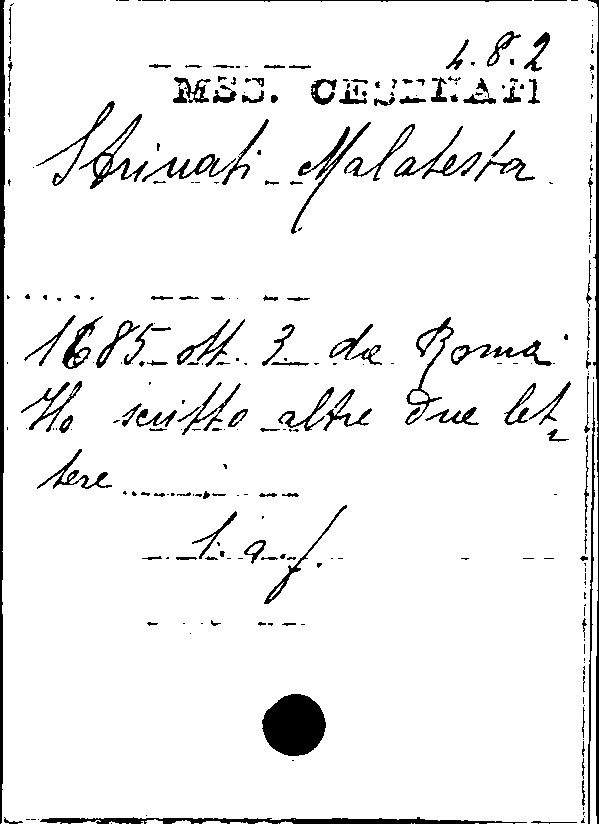 4.8.2
MSS. CESENATI
Strinati Malatesta
1685 ott. 3 da Roma
Ho scritto altre due let=
tere
l. a. f.